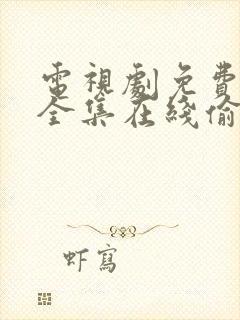 電視劇免費
全集在綫偷
虾寫